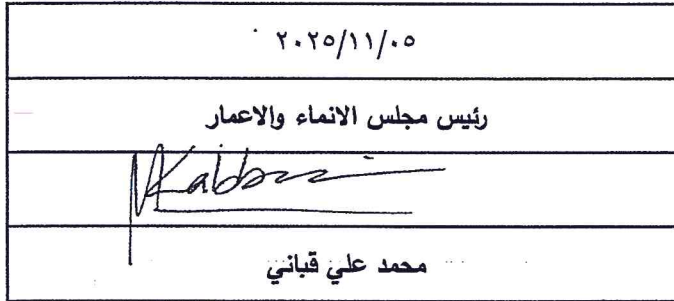 ٢٠٢٥/١١/٠٥
رئيس مجلس الانماء والاعمار
Kabbani
محمد علي قباني